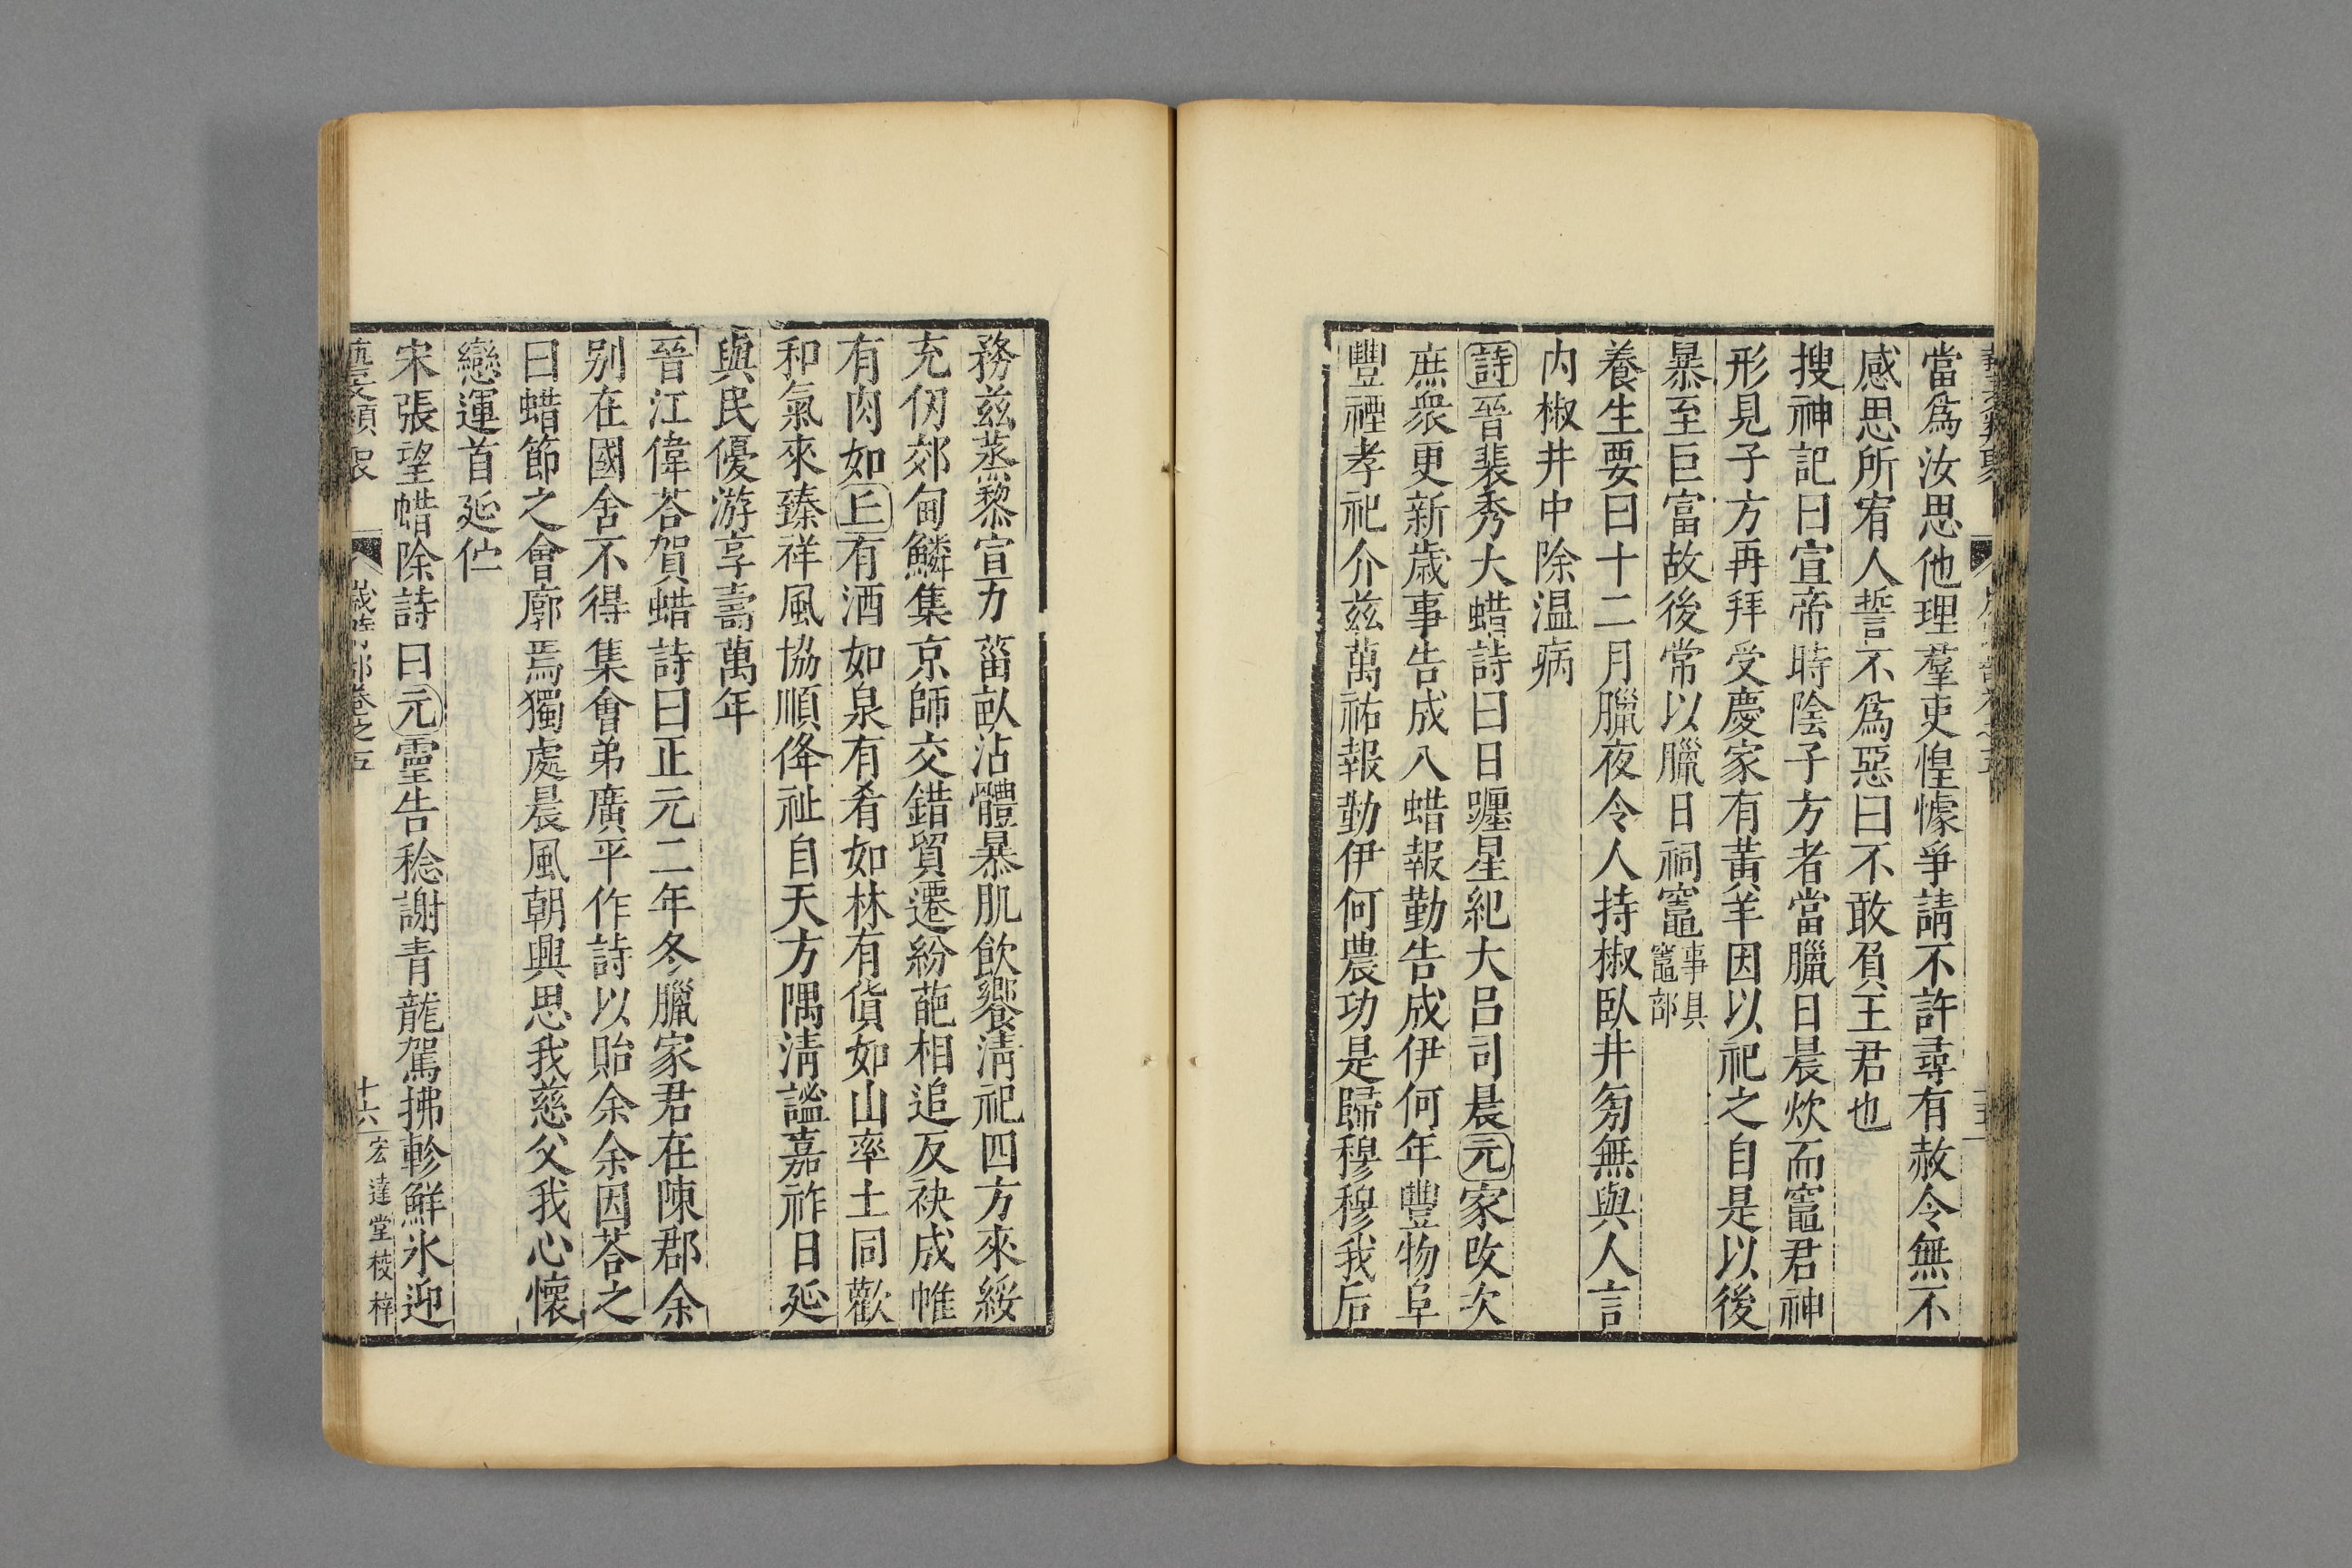 當爲汝思他理羣吏惶懅爭請不許尋有赦令無不
感思所宥人誓不爲惡曰不敢負王君也
搜神記曰宣帝時陰子方者當臘日晨炊而竈君神
形見子方再拜受慶家有黃羊因以祀之自是以後
暴至巨富故後常以臘日祠竈事具竈部
養生要曰十二月臘夜令人持椒臥井旁無與人言
內椒井中除温病
詩晉裴秀大蜡詩曰日躔星紀大呂司晨元家改次
庶衆更新歲事告成八蜡報勤告成伊何年豐物阜
豐禋孝祀介兹萬祐報勤伊何農功是歸穆穆我后
務兹蒸黎宣力菑畝沾體暴肌飲饗清祀四方來綏
充仞郊甸鱗集京師交錯貿遷紛葩相追反袂成帷
有肉如丘有酒如泉有肴如林有貨如山率土同歡
和氣來臻祥風協順降祉自天方隅清謐嘉祚日延
與民優游享壽萬年
晉江偉荅賀蜡詩曰正元二年冬臘家君在陳郡余
别在國舍不得集會弟廣平作詩以貽余余因荅之
曰蜡節之會廓焉獨處晨風朝興思我慈父我心懷
戀運首延伫
宋張望蜡除詩曰元靈告稔謝青龍駕拂軫鮮氷迎
藝文類聚 歲時部卷之五 十六 宏達堂校梓